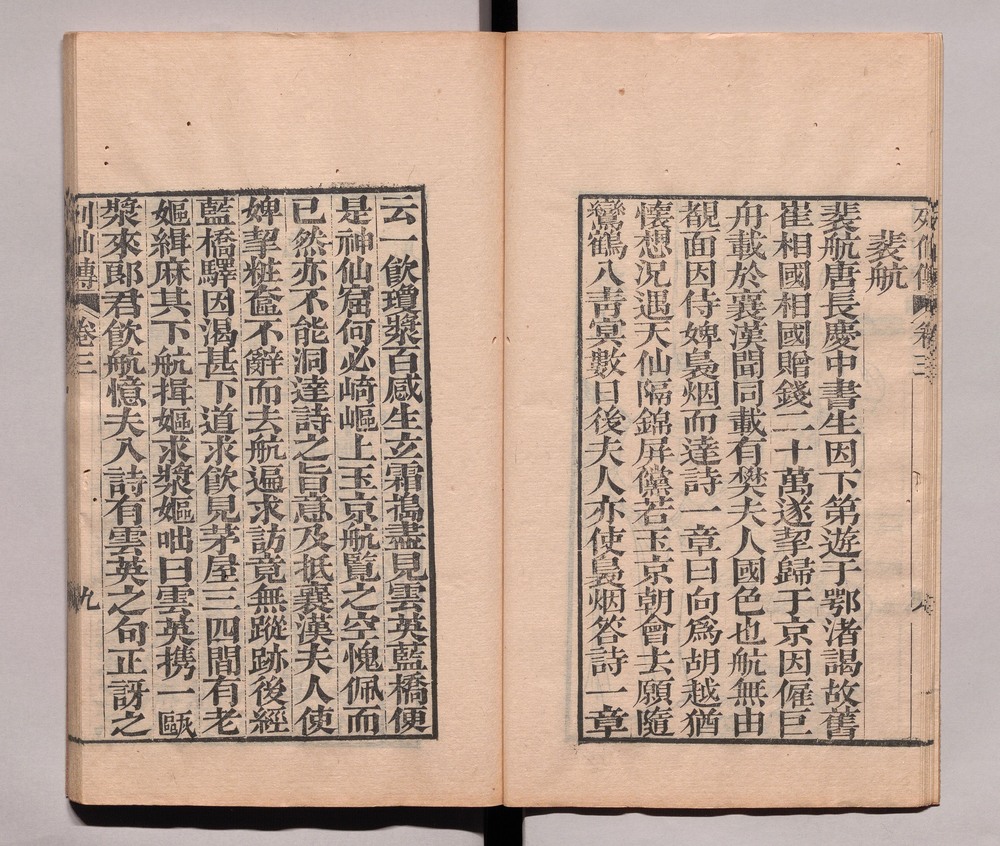 列仙傳 卷三
裴航
裴航唐長慶中書生因下第遊于鄂渚謁故舊
崔相國相國贈錢二十萬遂挈歸于京因傭巨
舟載於襄漢間同載有樊夫人國色也航無由
覩面因侍婢裊烟而達詩一章曰向爲胡越猶
懷想況遇天仙隔錦屏儻若玉京朝會去願隨
鸞鶴入靑冥數日後夫人亦使裊烟答詩一章
云一飲瓊漿百感生玄霜搗盡見雲英藍橋便
是神仙窟何必崎嶇上玉京航覽之空愧佩而
已然亦不能洞達詩之旨意及抵襄漢夫人使
婢挈粧奩不辭而去航遍求訪竟無蹤跡後經
藍橋驛因渴甚下道求飲見茅屋三四間有老
嫗緝麻其下航揖嫗求漿嫗咄曰雲英携一甌
漿來郎君飲航憶夫人詩有雲英之句正訝之
列仙傳 卷三 九